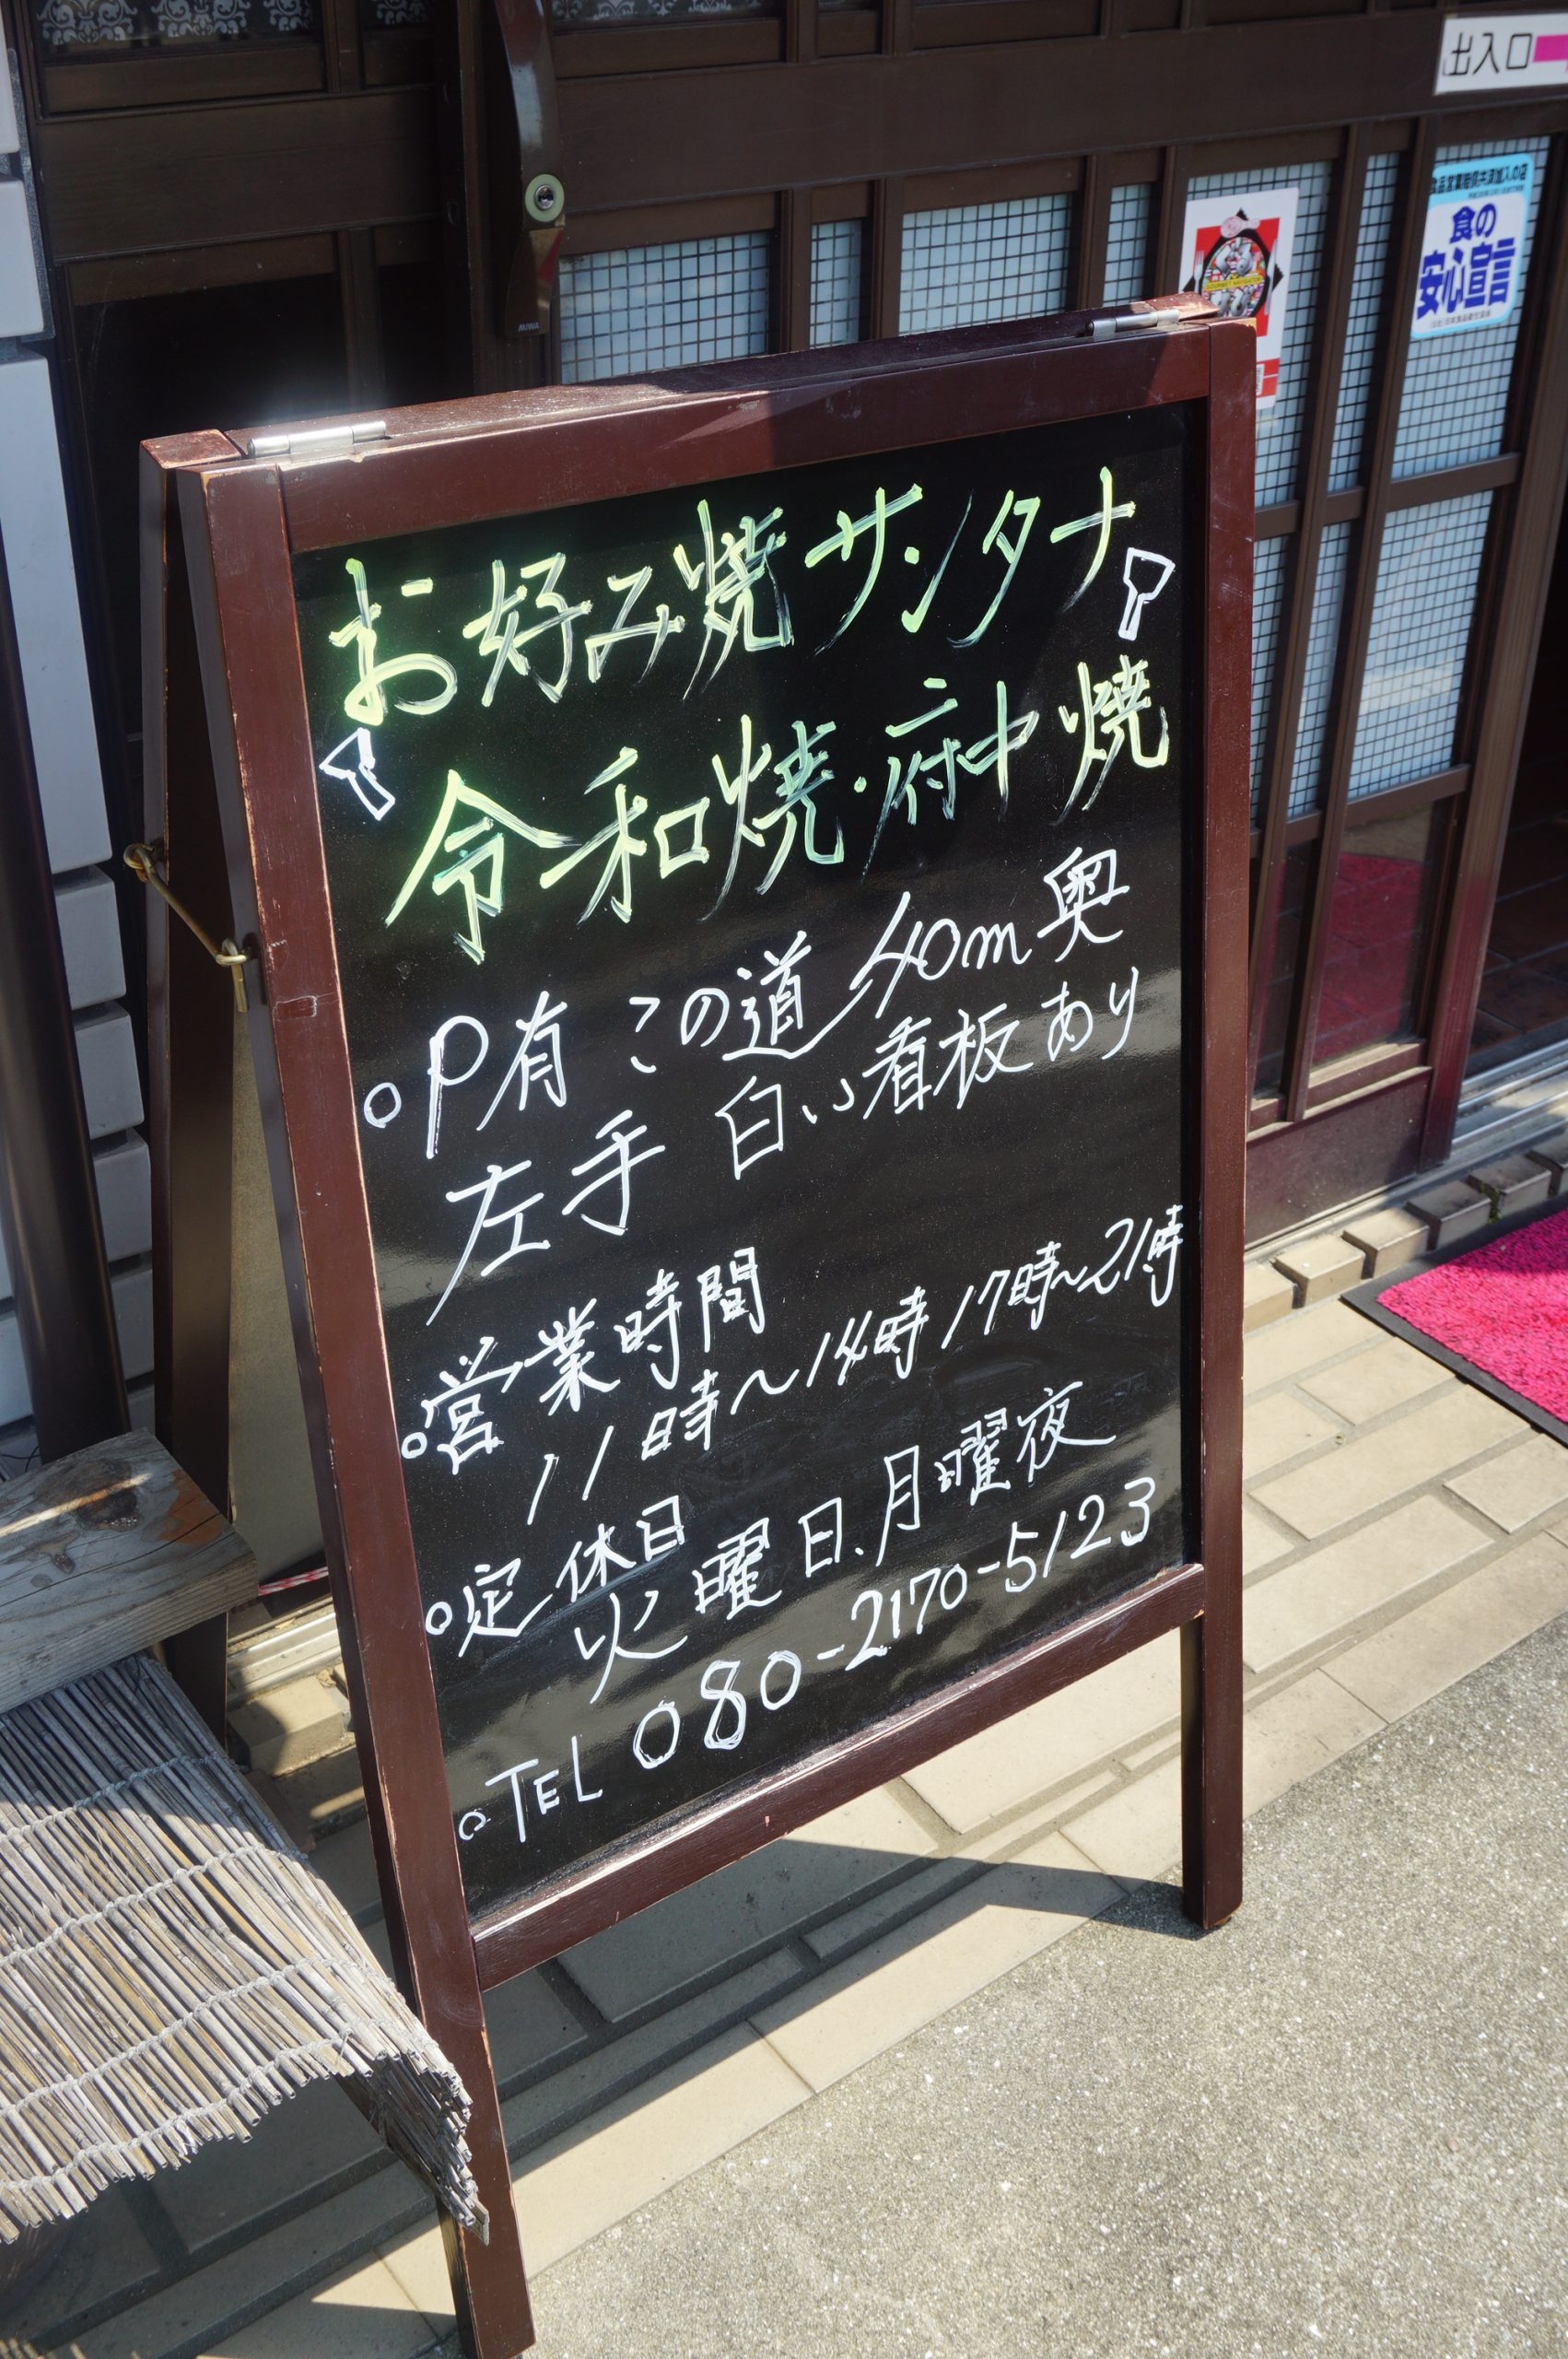 出入口
食品営業賠償共済加入の店
食の
安心宣言
MIWA
お好み焼サンタナ
令和焼・府中焼
○P有 この道40m奥
左手 白い看板あり
○営業時間
11時～14時 17時～21時
○定休日
火曜日、月曜夜
○TEL 080-2170-5123